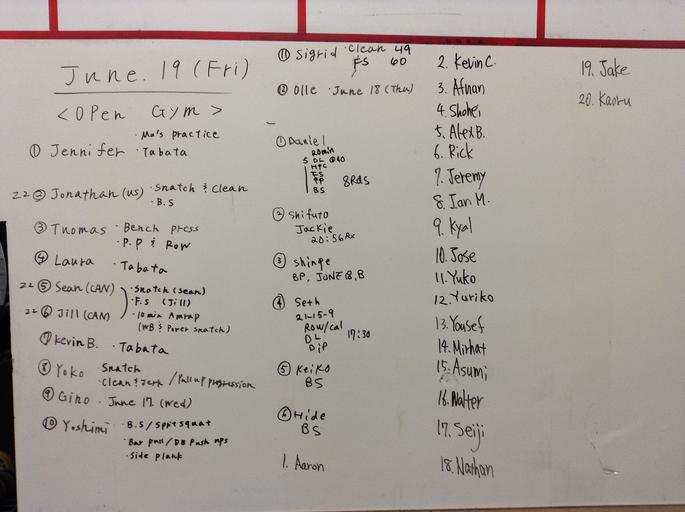 June. 19 (Fri)
<Open Gym>
· Mu's practice
① Jennifer · Tabata
22 ② Jonathan (US) · Snatch & Clean
· B.S
③ Thomas · Bench press
· P.P & Row
④ Laura · Tabata
22 ⑤ Sean (CAN) · Snatch (Sean)
· F.S (Jill)
22 ⑥ Jill (CAN) · 10 min Amrap
(WB & Power Snatch)
⑦ Kevin B. · Tabata
⑧ Yoko · Snatch
· Clean & Jerk / Pull up progression
⑨ Gino · June 17 (Wed)
⑩ Yoshimi · B.S / Split squat
· Bar pull / DB Push ups
· Side plank
⑪ Sigrid · Clean 49
FS 60
⑫ Olle · June 18 (Thu)
① Daniel
20min
5 DL @40
HPC
FS
PP
BS
8Rds
② Shifuto
Jackie
20:56 Rx
③ Shinge
BP, JUNE 8, B
④ Seth
21-15-9
Row/cal
DL
Dip
17:30
⑤ Keiko
BS
⑥ Hide
BS
1. Aaron
2. Kevin C.
3. Afnan
4. Shohei
5. Alex B.
6. Rick
7. Jeremy
8. Ian M.
9. Kyal
10. Jose
11. Yuko
12. Yuriko
13. Yousef
14. Mirhat
15. Asumi
16. Walter
17. Seiji
18. Nathan
19. Jake
20. Kaoru